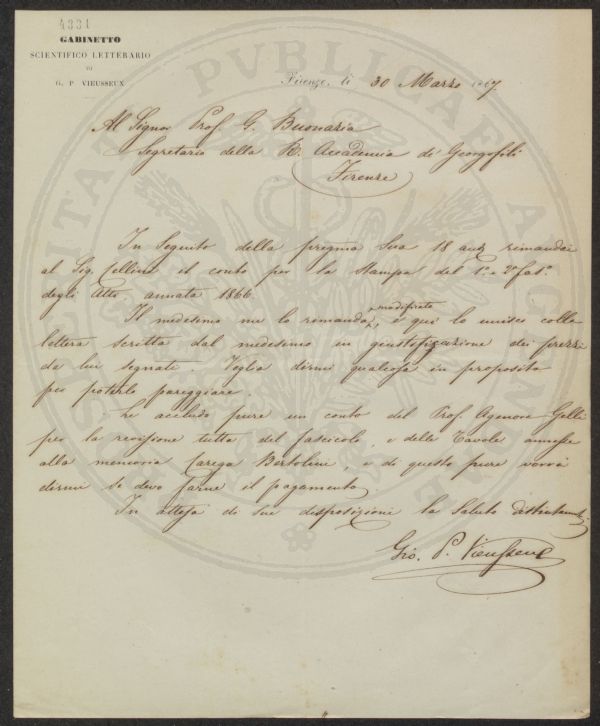 4331
GABINETTO
SCIENTIFICO LETTERARIO
DI
G. P. VIEUSSEUX
Firenze, li 30 Marzo 1867
Al Signor Prof. G. Buonaria
Segretario della R. Accademia de' Georgofili
Firenze
In seguito della pregma Sua 18 andte rimandai
al Sig. Cellini il conto per la Stampa del 1º e 2º fasº
degli Atti annata 1866.
modificato
Il medesimo me lo rimanda, e qui lo unisco colla
lettera scritta dal medesimo in giustificazione dei prezzi
da lui segnati. Voglia dirmi qualcosa in proposito
per poterlo pareggiare.
Le accludo pure un conto del Prof. Agenore Gelli
per la revisione tutta del fascicolo, e delle Tavole annesse
alla memoria Carega Bertolini, e di questo pure vorrà
dirmi se devo farne il pagamento.
In attesa di sue disposizioni la Saluto distintamte
Gio. P. Vieusseux